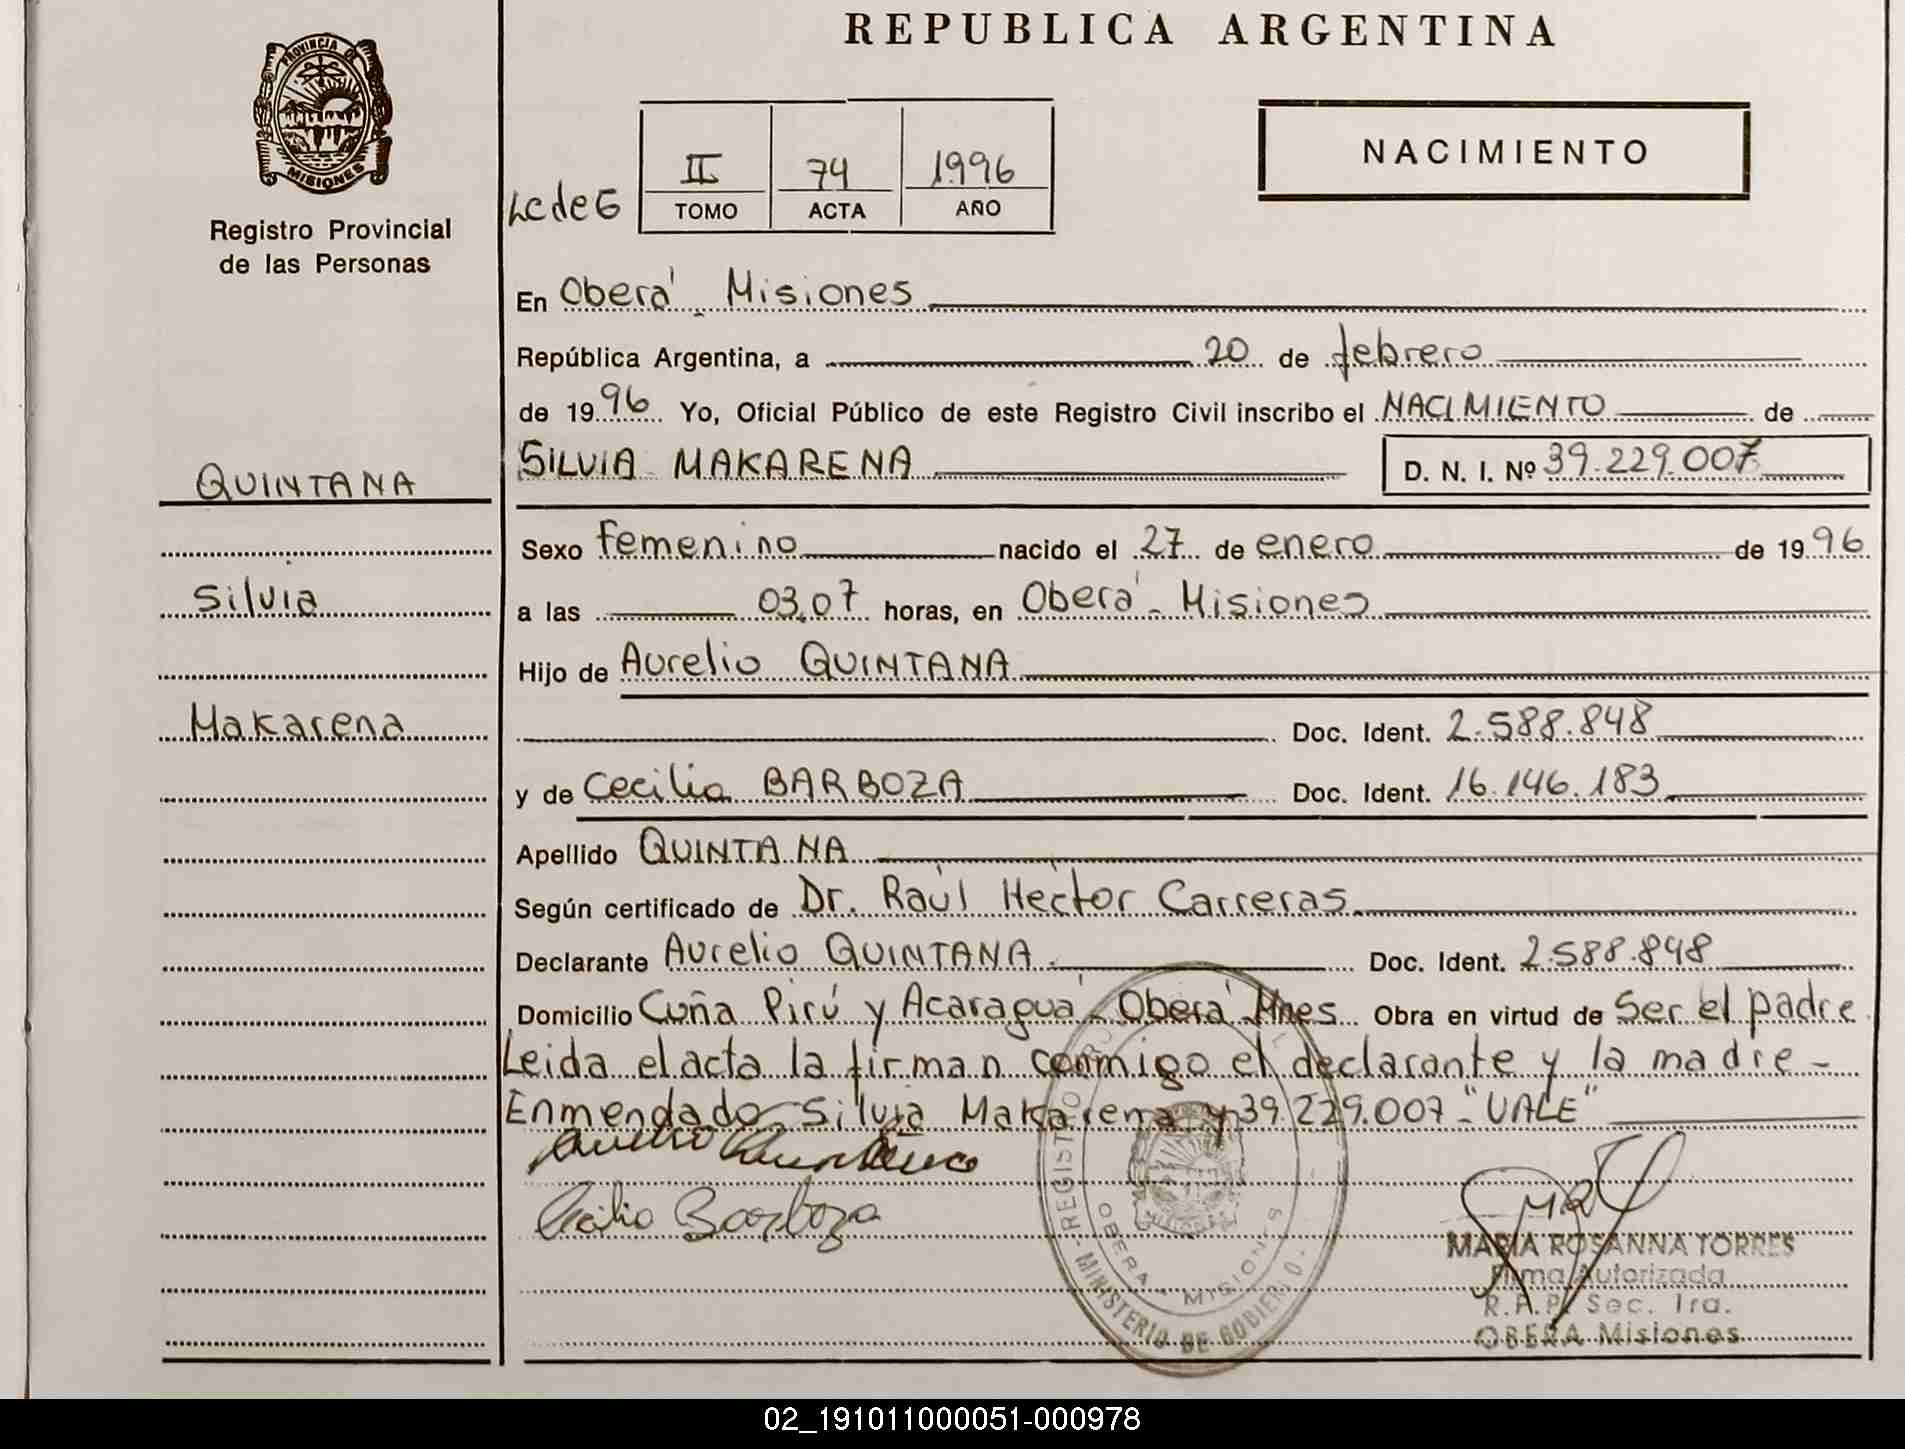 REPUBLICA ARGENTINA
PROVINCIA DE
MISIONES
Registro Provincial
de las Personas
LC de E
II 74 1996
TOMO ACTA AÑO
NACIMIENTO
En Oberá - Misiones
República Argentina, a 20 de febrero
de 1996 Yo, Oficial Público de este Registro Civil inscribo el NACIMIENTO de
SILVIA MAKARENA D. N. I. Nº 39.229.007
QUINTANA
Silvia
Makarena
Sexo femenino nacido el 27 de enero de 1996
a las 03,07 horas, en Oberá - Misiones
Hijo de Aurelio QUINTANA
Doc. Ident. 2.588.848
y de Cecilia BARBOZA Doc. Ident. 16.146.183
Apellido QUINTANA
Según certificado de Dr. Raúl Hector Carreras
Declarante Aurelio QUINTANA. Doc. Ident. 2.588.848
Domicilio Cuña Pirú y Acaraguá - Oberá Mnes Obra en virtud de Ser el padre
Leida el acta la firman conmigo el declarante y la madre -
Enmendado Silvia Makarena y 39.229.007 - "VALE"
Cecilia Barboza
REGISTRO
OBERA - MISIONES
MISIONES
MINISTERIO DE GOBIERNO
MARIA ROSANNA TORRES
Firma Autorizada
R.P.P. Sec. 1ra.
OBERA Misiones
02_191011000051-000978